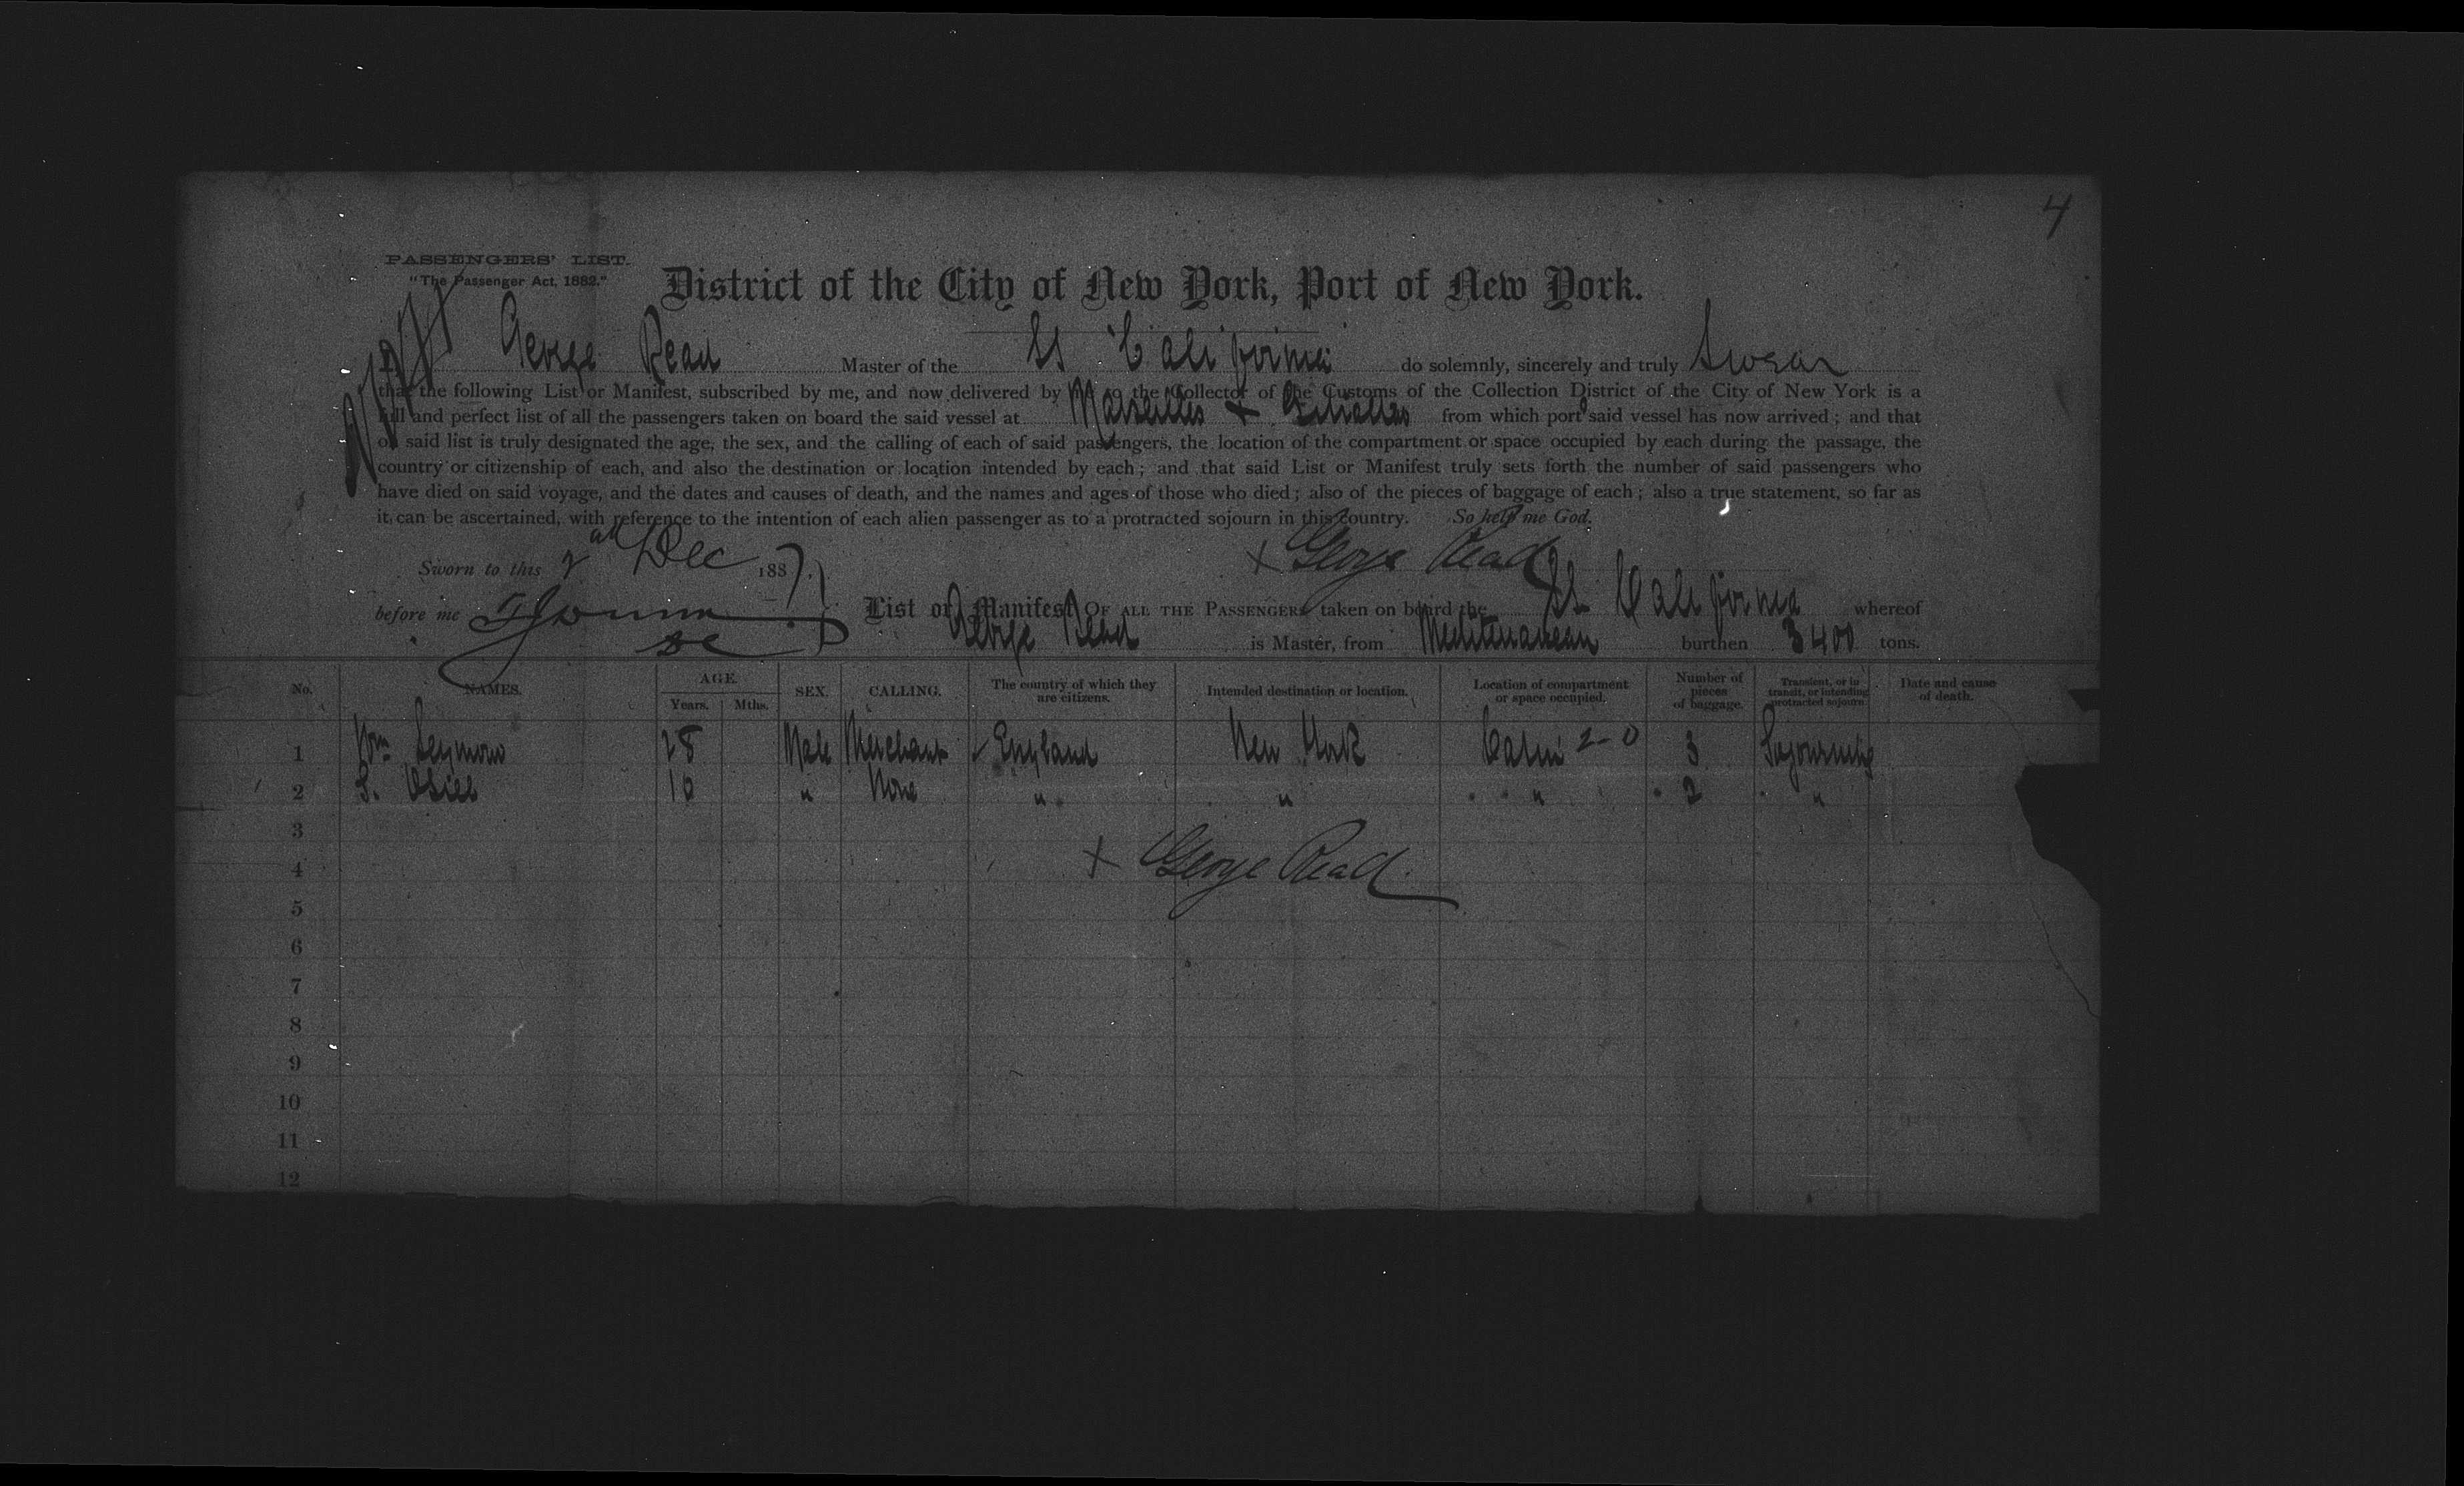 4
PASSENGERS' LIST.
"The Passenger Act, 1882."
District of the City of New York, Port of New York.
George Read Master of the SS California do solemnly, sincerely and truly Swear
that the following List or Manifest, subscribed by me, and now delivered by me to the Collector of the Customs of the Collection District of the City of New York is a
full and perfect list of all the passengers taken on board the said vessel at Marseilles + Gibraltar from which port said vessel has now arrived; and that
on said list is truly designated the age, the sex, and the calling of each of said passengers, the location of the compartment or space occupied by each during the passage, the
country or citizenship of each, and also the destination or location intended by each; and that said List or Manifest truly sets forth the number of said passengers who
have died on said voyage, and the dates and causes of death, and the names and ages of those who died; also of the pieces of baggage of each; also a true statement, so far as
it can be ascertained, with reference to the intention of each alien passenger as to a protracted sojourn in this country. So help me God.
Sworn to this Dec 1887. x George Read
before me List or Manifest OF ALL THE PASSENGERS taken on board the SS California whereof
George Read is Master, from Mediterranean burthen 3400 tons.
No. NAMES. AGE. Years. Mths. SEX. CALLING. The country of which they are citizens. Intended destination or location. Location of compartment or space occupied. Number of pieces of baggage. Transient, or in transit, or intending protracted sojourn. Date and cause of death.
1 Wm Seymour 28 Male Merchant England New York Cabin 2-0 3 Sojourning
2 S. 10 " None " " " 2 "
3
x George Read
4
5
6
7
8
9
10
11
12